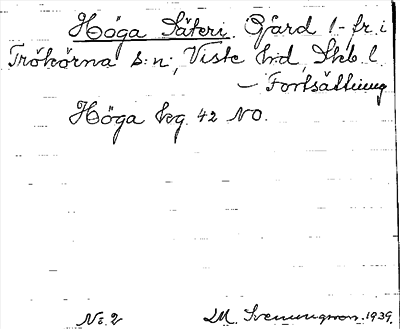 Höga Säteri. Gård 1-fr. i
Trökörna s:n, Viste h:d, Skb. l.
— Fortsättning
Höga kg. 42 NO.
No. 2 M. Svenungsson. 1939.